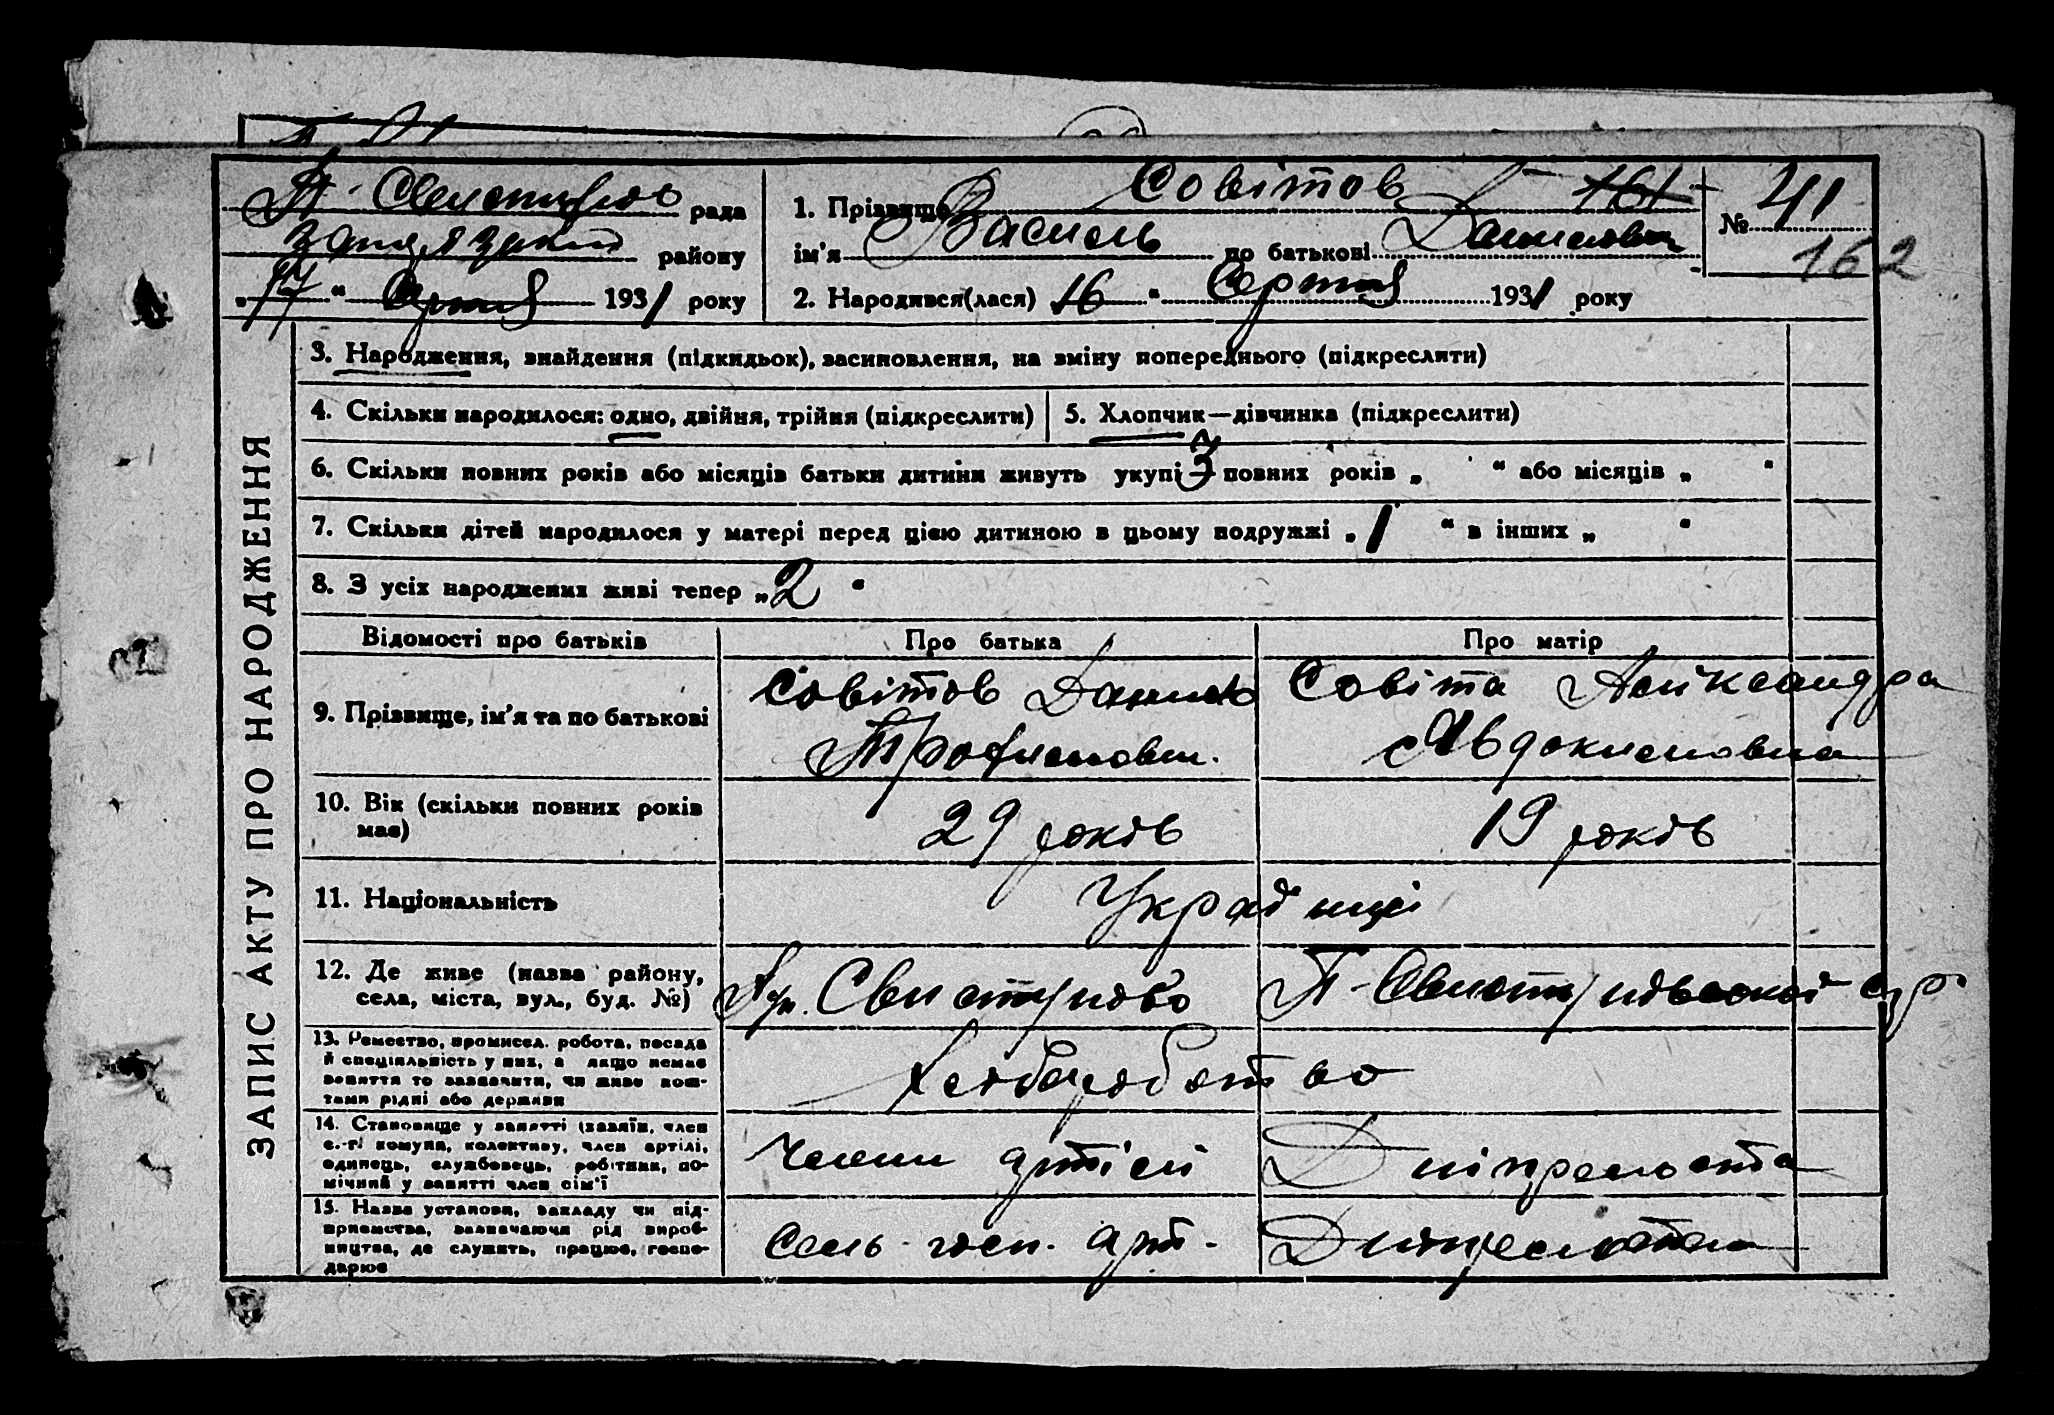 П. Свистунов рада
району
„17“ Серпня 1931 року
1. Прізвище Совітов 161
ім'я Василь по батькові Данилович
2. Народився(лася) 16 “ Серпня 1931 року
№ 41
162
ЗАПИС АКТУ ПРО НАРОДЖЕННЯ
3. Народження, знайдення (підкидьок), засиновлення, на зміну попереднього (підкреслити)
4. Скільки народилося: одно, двійня, трійня (підкреслити)
5. Хлопчик—дівчинка (підкреслити)
6. Скільки повних років або місяців батьки дитини живуть укупі 3 повних років „ “ або місяців „ “
7. Скільки дітей народилося у матері перед цією дитиною в цьому подружжі „1 “ в інших „ “
8. З усіх народжених живі тепер „2 “
Відомості про батьків Про батька Про матір
9. Прізвище, ім'я та по батькові
Совітов Данило
Трофимович.
Совіта Аліксандра
Явдокимовна
10. Вік (скільки повних років
має)
29 років
19 років
11. Національність
Українці
12. Де живе (назва району,
села, міста, вул., буд. №)
Свистуново
П-Свистунівської с/р
13. Ремество, промисел. робота, посада
й спеціяльність у них, а якщо немає
заняття то зазначити, чи живе кош-
тами рідні або держави
Хліборобство
14. Становище у занятті (хазяїн, член
с.-г. комуни, колективу, член артілі,
одинець, службовець, робітник, по-
мічний у занятті член сім'ї
Член артілі
15. Назва установи, закладу чи під-
приємства, зазначаючи рід вироб-
ництва, де служить, працює, госпо-
дарює
Сель-госп. арт.